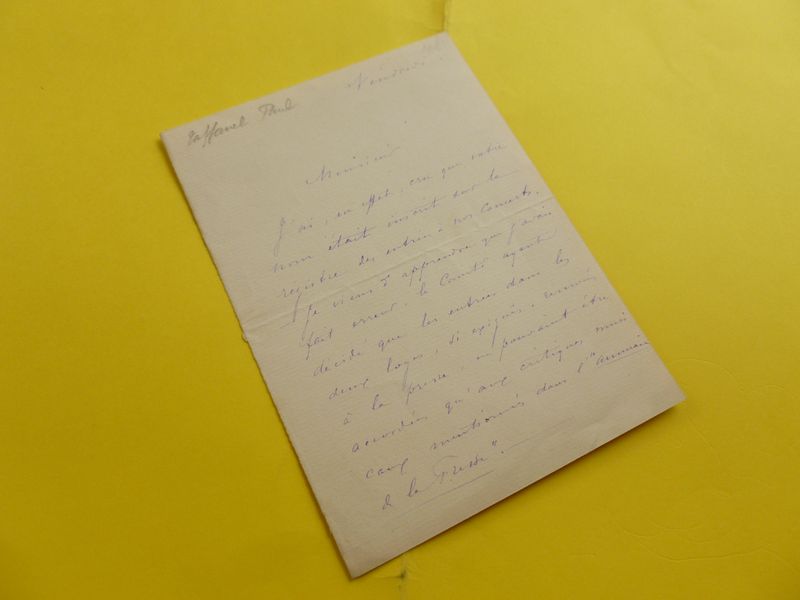 Taffanel Paul
Vendredi
Monsieur
J'ai, en effet, cru que votre
nom était inscrit sur le
registre des entrées à nos Concerts.
Je viens d'apprendre que j'avais
fait erreur, le Comité ayant
décidé que les entrées dans les
deux loges, si exiguës, réservées
à la presse, ne pouvaient être
accordées qu'aux critiques musi
caux mentionnés dans l'"annuaire
de la Presse".